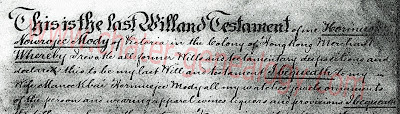 This is the last Will and Testament of me Hormusjee
Nowrojee Mody of Victoria in the Colony of Hongkong Merchant
Whereby I revoke all former Wills and testamentary dispositions and
declare this to be my last Will and testament I bequeath to my
Wife Manockbai Hormusjee Mody all my watches jewels
of the person and wearing apparel wines liquors and provisions I bequeath